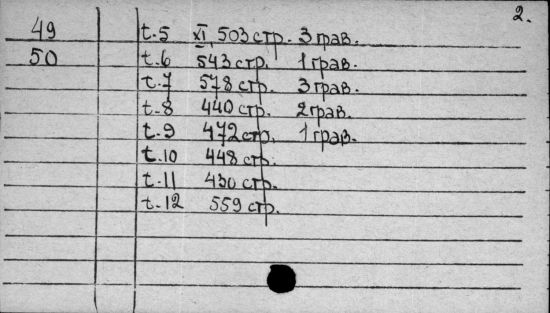 2.
49 t.5 XI, 503 стр. 3 грав.
50 t.6 543 стр. 1 грав.
t.7 578 стр. 3 грав.
t.8 440 стр. 2 грав.
t.9 472 стр. 1 грав.
t.10 448 стр.
t.11 430 стр.
t.12 559 стр.